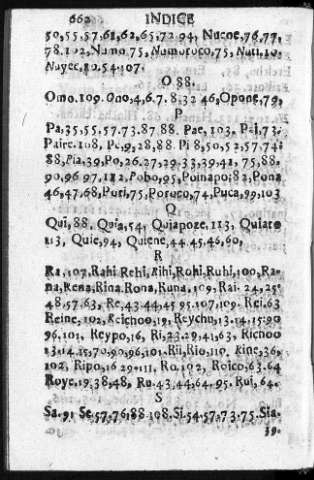 662 INDICE
50,55,57,61,62,65,72 94, Nucne,76,77,
78.102, Numo 75, Numoroco,75, Nuti,10,
Nuyec,10.54.107.
O 88.
Omo.109. Ono,4,6.7. 8.32 46,Opone,79,
P
Pa,35,55,57.73.87 88. Pae, 103. 73.
Pairc.108, Pe,9,28,88. Pi 8,50,52,57,74
88,Pia,39,Po,26.27,29 33,39,41, 75,88.
90,96 97, 112, Pobo,95, Poinapo;82, Pona
46,47,68, Pori,75, Poroco,74, Puca,99,103
Q
Qui,88, Quia,54, Quiapoze.113, Quiare
113, Quie,94, Quiene,44.45.46,60,
R
Ra,107,Rahi Rehi,Rihi,Rohi.Ruhi,100,Ra-
na,Rena,Rina.Rona,Runa, 109, Rai. 24,25.
48,57.63, Re,43 44,45 95.107,109. Rei.63
Reine, 102, Reichoo,19, Reychu,13.14.15.90
96.101, Reypo,16, Ri,23.29,41,63, Richoo
13.14.15,70,90,96,101, Rii,Rio,110, Rine,36,
102, Ripo,16 29.111, Ro.102, Roico,63.64
Roye.19,38,48, Ru.43,44,64.95. Rui, 64.
S
Sa.91 Se.57,76,88.108.Si.54.57,73.75.Sia.
39.